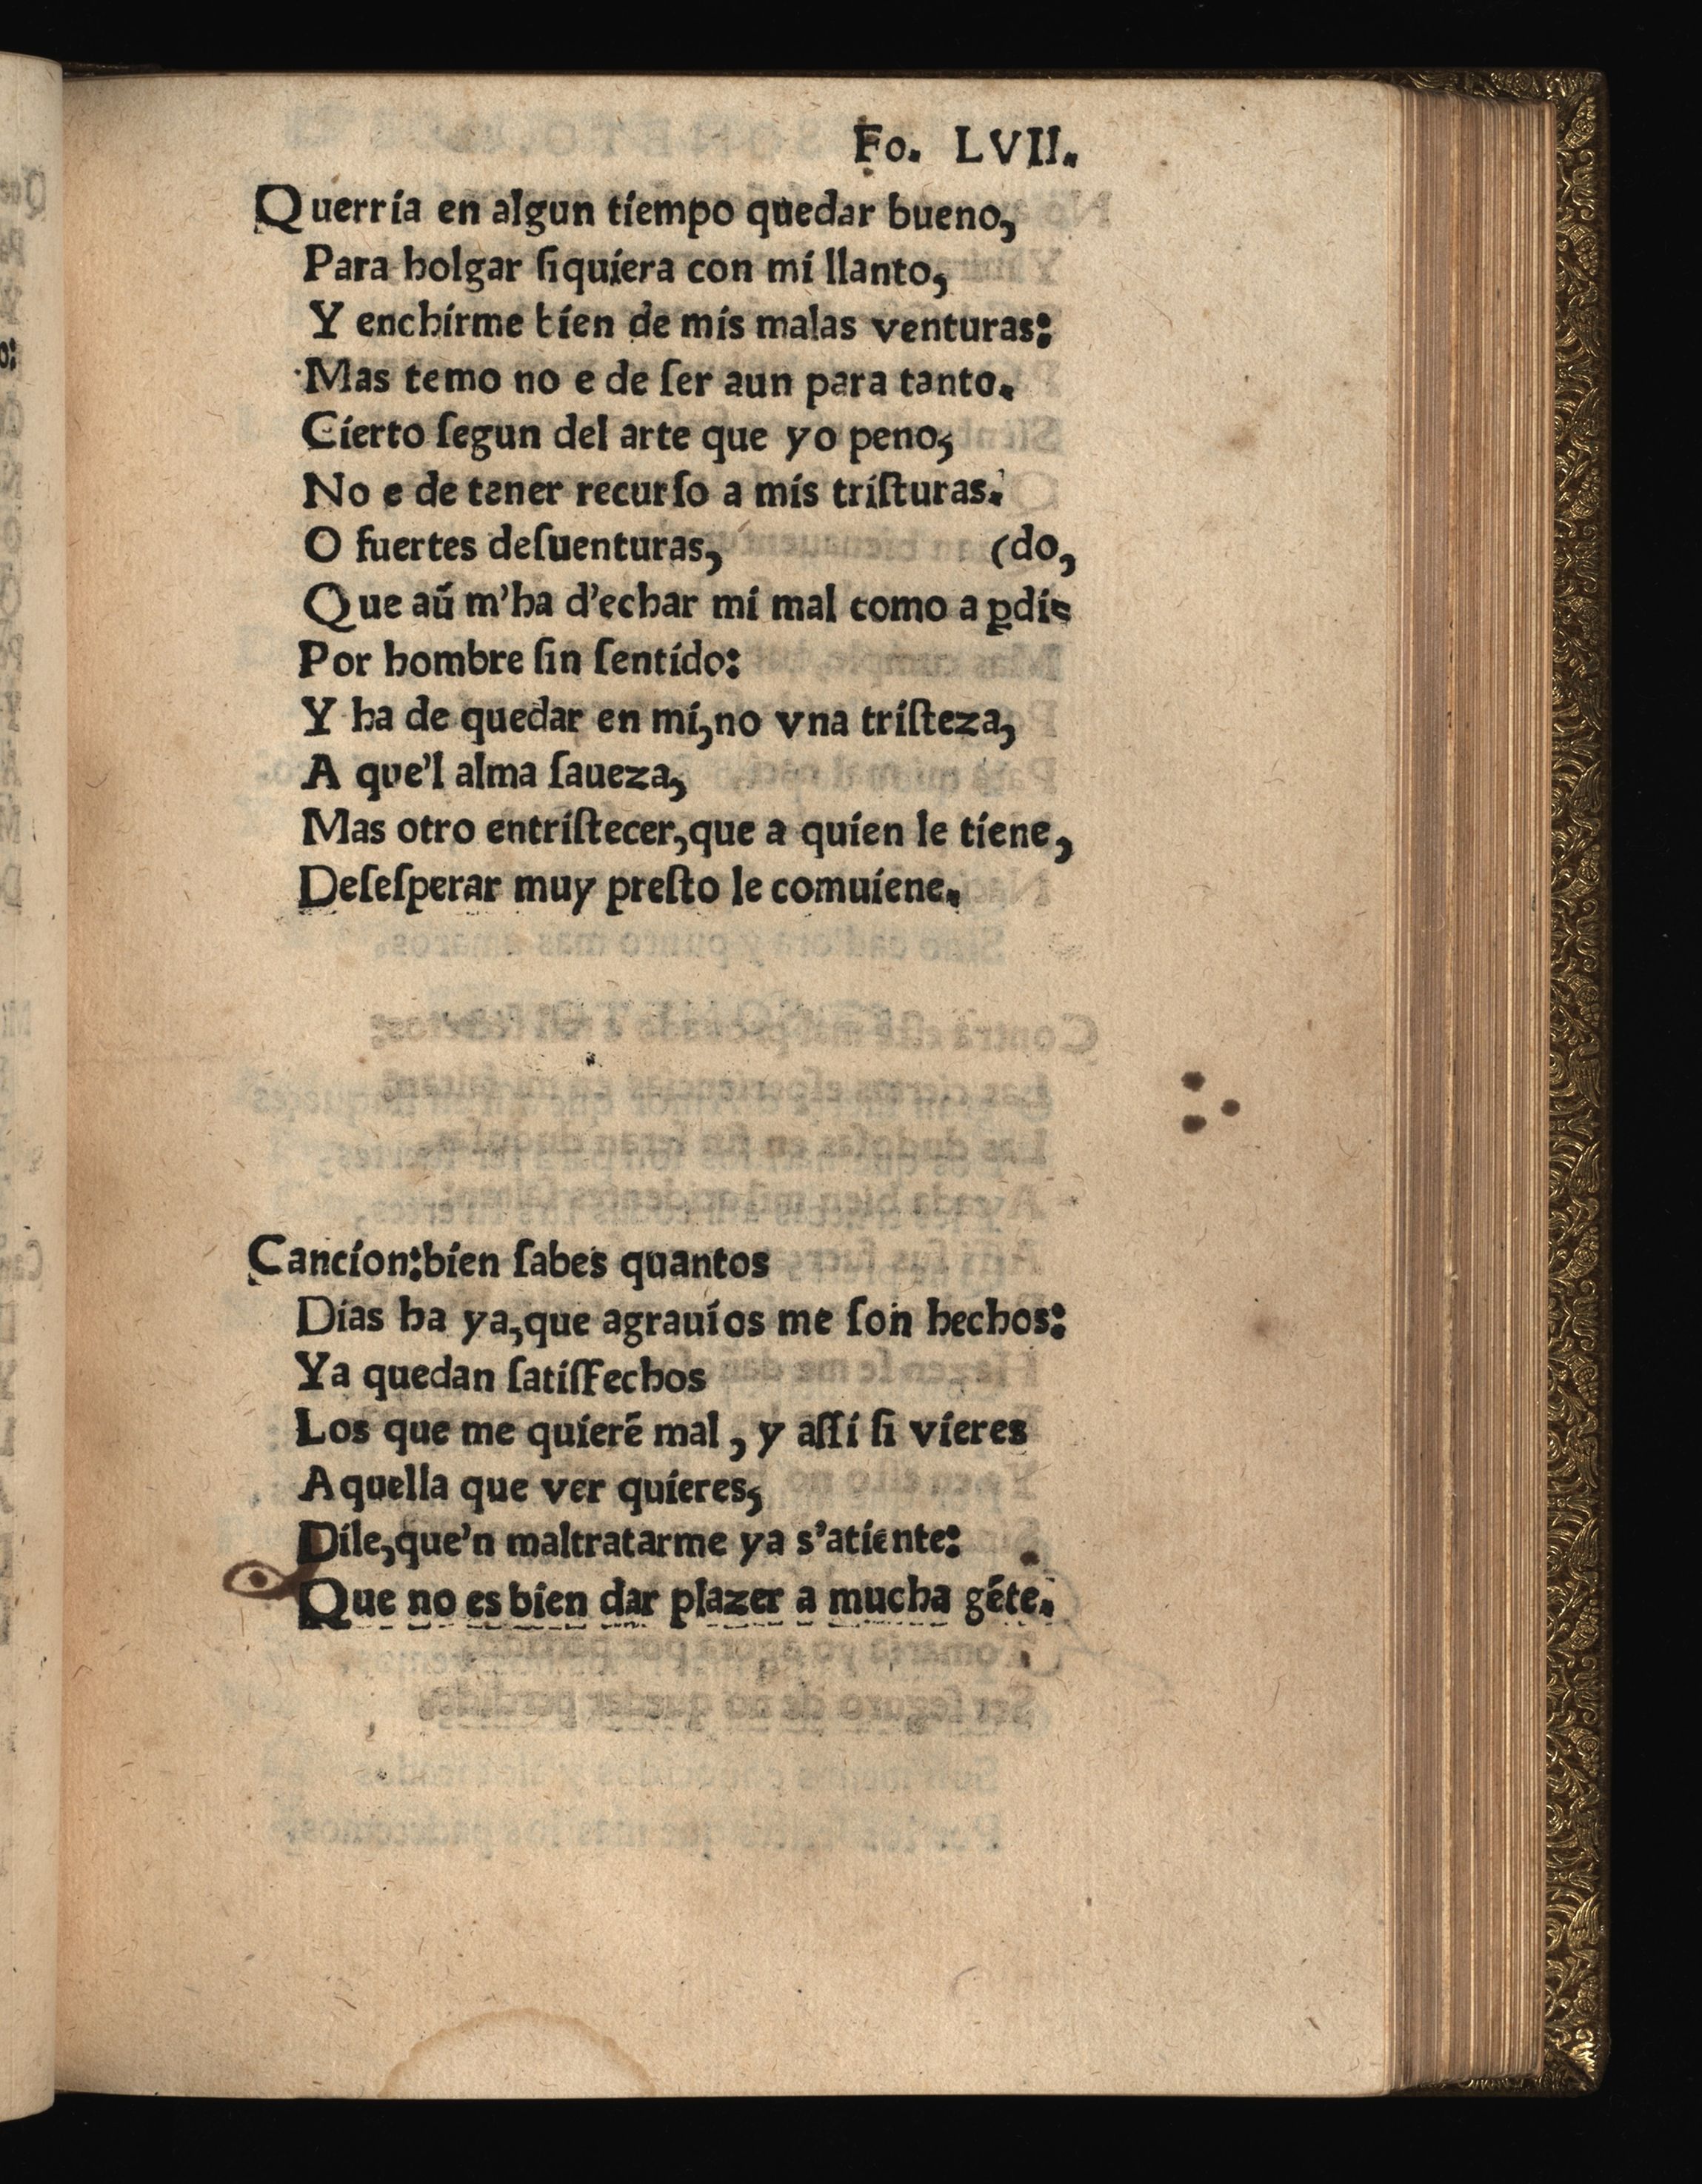 Fo. LVII.
Querria en algun tiempo quedar bueno,
Para holgar ſiquiera con mi llanto,
Y enchirme bien de mis malas venturas:
Mas temo no e de ſer aun para tanto.
Cierto ſegun del arte que yo peno,
No e de tener recurſo a mis triſturas.
O fuertes deſuenturas, (do,
Que aũ m'ha d'echar mi mal como a ꝑdi-
Por hombre ſin ſentido:
Y ha de quedar en mi,no vna triſteza,
A que'l alma ſaueza,
Mas otro entriſtecer,que a quien le tiene,
Deſeſperar muy preſto le comuiene.
Cancion:bien ſabes quantos
Dias ha ya,que agrauios me ſon hechos:
Ya quedan ſatiſfechos
Los que me quierẽ mal, y aſſi ſi vieres
Aquella que ver quieres,
Dile,que'n maltratarme ya s'atiente:
Que no es bien dar plazer a mucha gẽte.